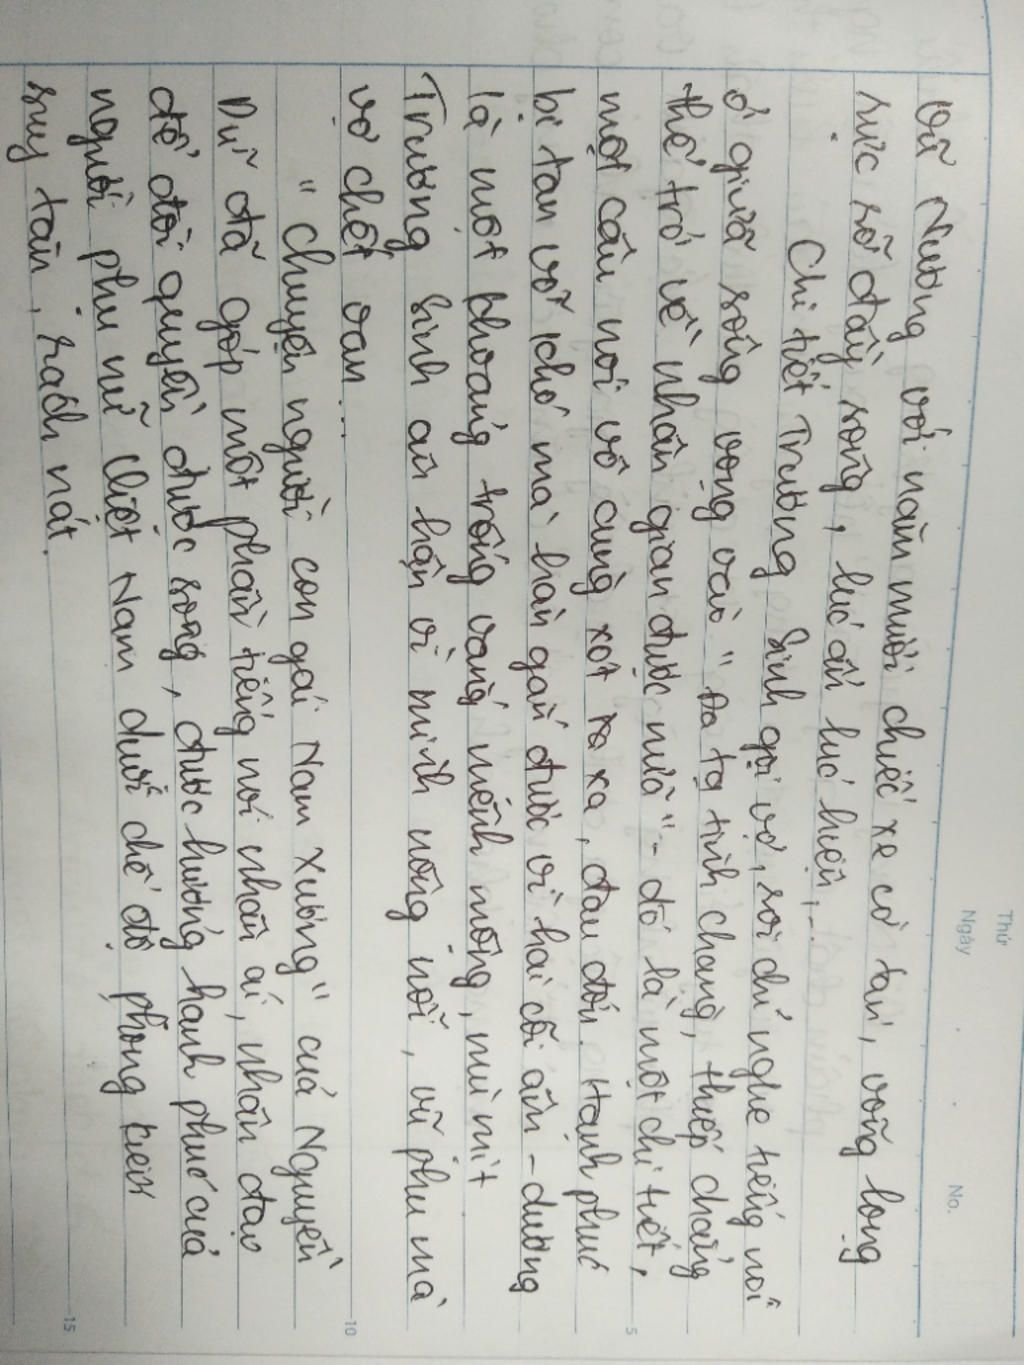 Thứ
Ngày
No.
Vũ Nương với năm mươi chiếc xe cờ tán, võng lọng
rực rỡ đầy sông, lúc ẩn lúc hiện,...
Chi tiết Trương Sinh gọi vợ, rồi chỉ nghe tiếng nói
ở giữa sông vọng vào " Đa tạ tình chàng, thiếp chẳng
thể trở về nhân gian được nữa" - đó là một chi tiết,
một câu nói vô cùng xót xa, đau đớn. Hạnh phúc
bị tan vỡ khó mà hàn gắn được vì hai cõi âm - dương
là một khoảng trống vắng mênh mông, mù mịt
Trương Sinh ân hận vì mình nông nổi, vũ phu mà
vợ chết oan...
" Chuyện người con gái Nam Xương" của Nguyễn
Dữ đã góp một phần tiếng nói nhân ái, nhân đạo
để đòi quyền được sống, được hưởng hạnh phúc của
người phụ nữ Việt Nam dưới chế độ phong kiến
suy tàn, rách nát.
5
10
15